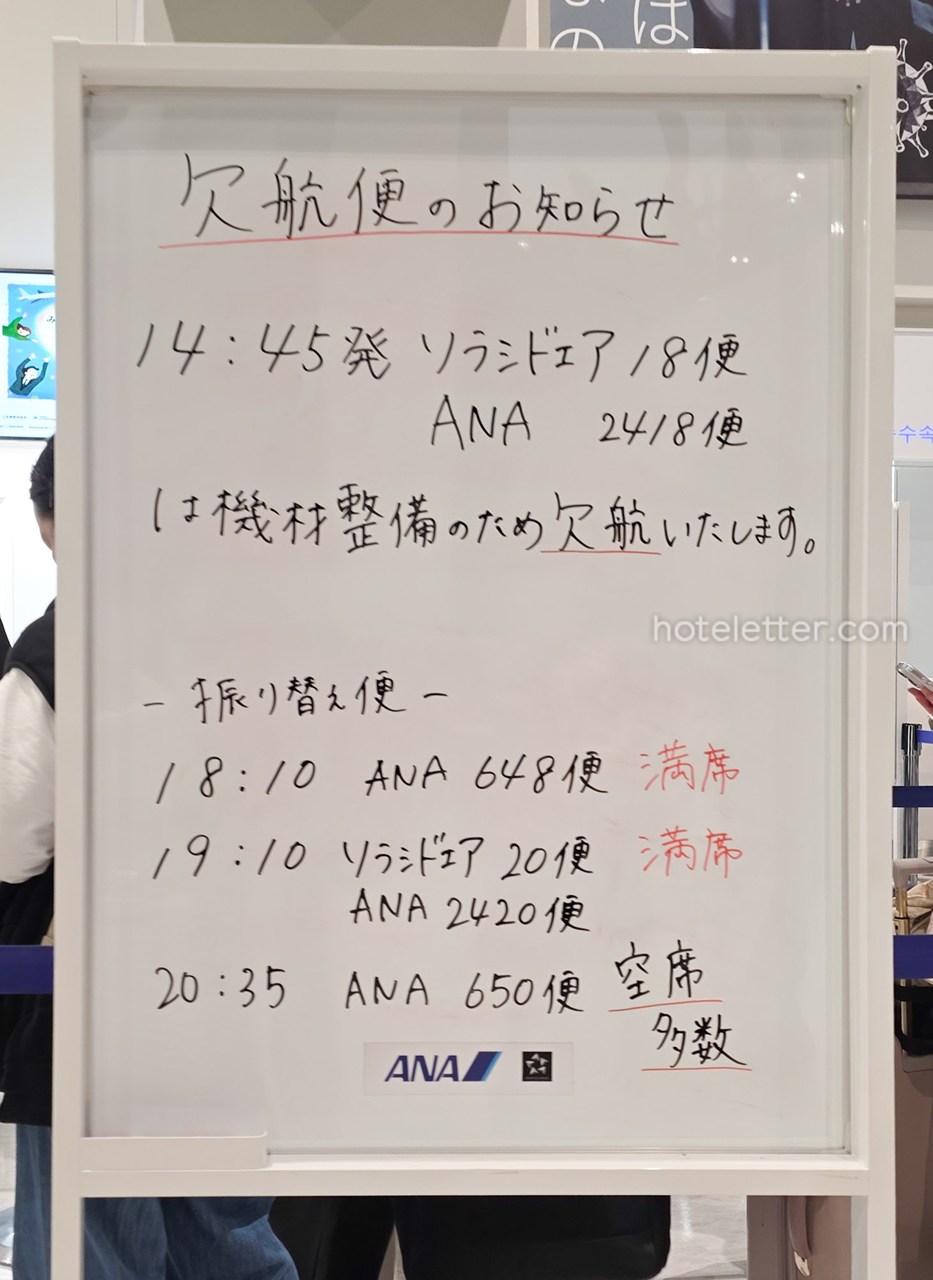 はの
欠航便のお知らせ
14:45発 ソラシドエア 18便
ANA 2418便
は機材整備のため欠航いたします。
hoteletter.com
수속
- 振り替え便 -
18:10 ANA 648便 満席
19:10 ソラシドエア 20便 満席
ANA 2420便
20:35 ANA 650便 空席
多数
ANA